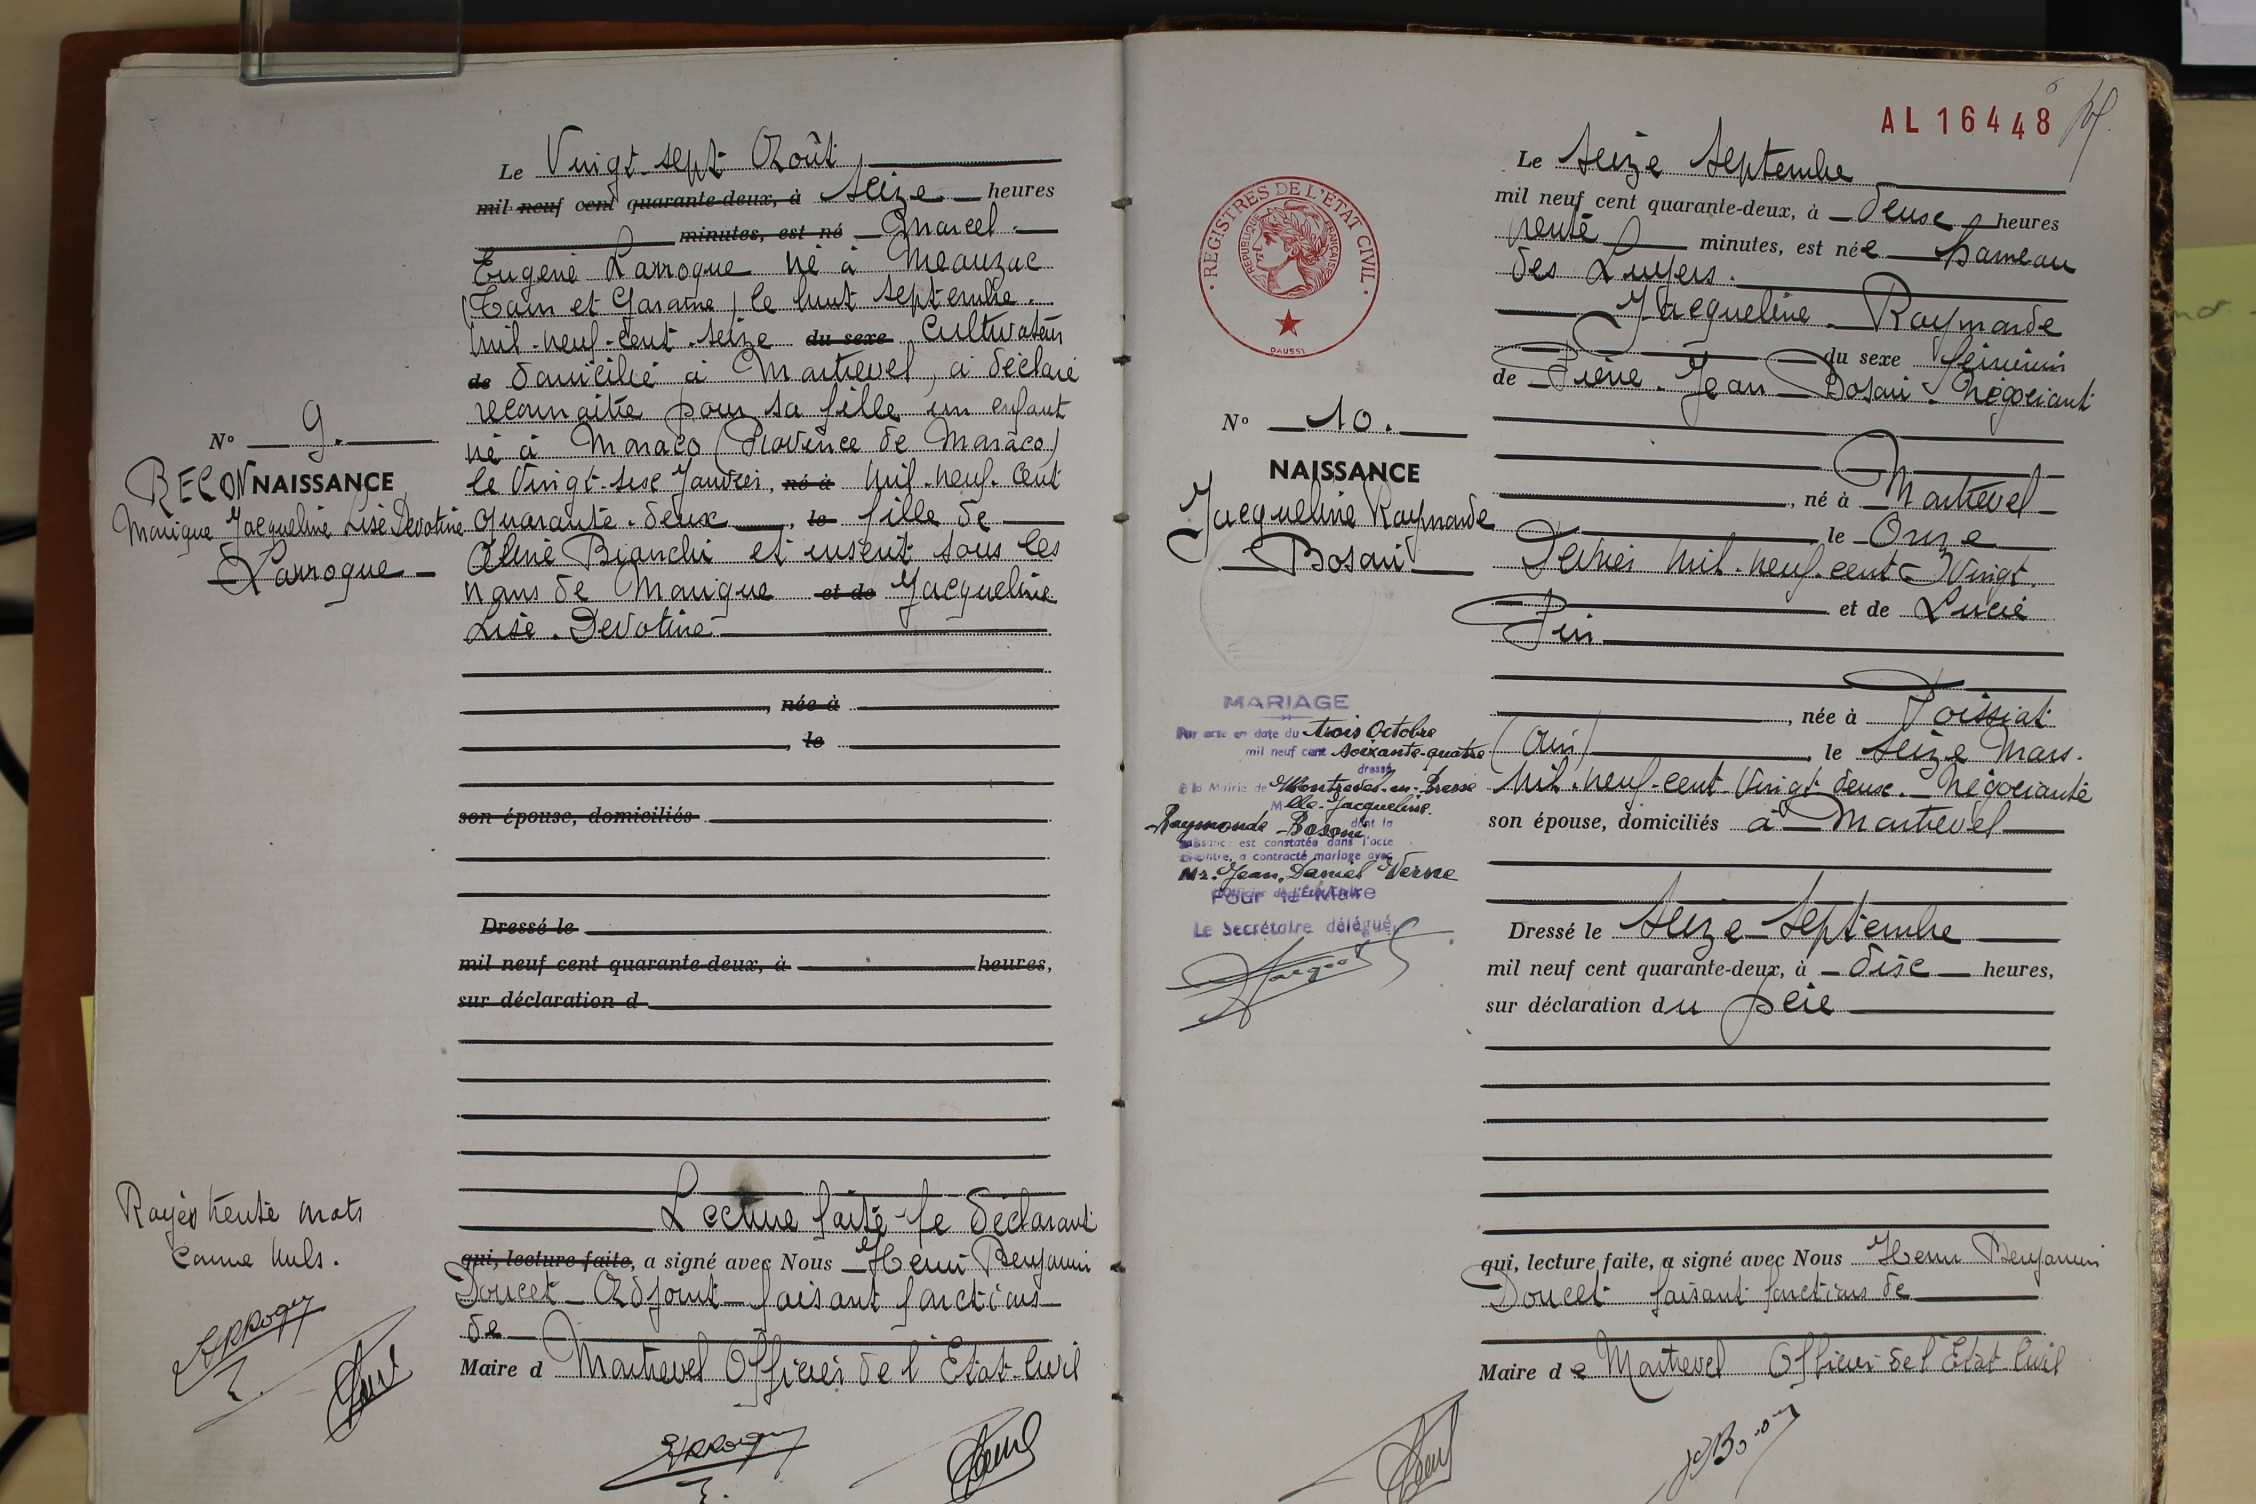 Le Vingt-sept Août
mil neuf cent quarante-deux, à Seize heures
minutes, est né Marcel
Eugène Larroque né à Meauzac
(Tarn et Garonne) le huit Septembre
mil-neuf-cent-seize du sexe Cultivateur
de domicilié à Montrevel, a déclaré
reconnaître pour sa fille un enfant
né à Monaco (Province de Monaco)
le Vingt-six Janvier, né à mil-neuf-cent
quarante-deux, le fille de
Aline Bianchi et inscrit sous les
noms de Monique et de Jacqueline
Lise. Devotine
, née à
, le
son épouse, domiciliés
Dressé le
mil neuf cent quarante-deux, à heures,
sur déclaration d
Lecture faite le déclarant
qui, lecture faite, a signé avec Nous Henri Benjamin
Doucet Adjoint faisant fonctions
de
Maire d Montrevel Officier de l'Etat-Civil
N° 9.
RECONNAISSANCE
Monique Jacqueline Lise Devotine
Larroque
Rayés trente mots
comme nuls.
AL 16448
Le Seize Septembre
mil neuf cent quarante-deux, à deux heures
trente minutes, est née hameau
des Luyers.
Jacqueline Raymonde
du sexe féminin
de Pierre-Jean Bosoni Négociant
, né à Montrevel
le Onze
Février mil-neuf-cent-Vingt.
et de Lucie
Pin
, née à Foissiat
(Ain) le Seize Mars.
mil-neuf-cent-Vingt deux. Négociante
son épouse, domiciliés à Montrevel
Dressé le Seize Septembre
mil neuf cent quarante-deux, à dix heures,
sur déclaration du père
qui, lecture faite, a signé avec Nous Henri Benjamin
Doucet faisant fonctions de
Maire de Montrevel Officier de l'Etat-Civil
REGISTRES DE L'ETAT CIVIL
REPUBLIQUE FRANÇAISE
DAUSSY
N° 10.
NAISSANCE
Jacqueline Raymonde
Bosoni
MARIAGE
Par acte en date du trois Octobre
mil neuf cent soixante-quatre
dressé
à la Mairie de Montrevel-en-Bresse
Mlle Jacqueline
Raymonde Bosoni dont la
naissance est constatée dans l'acte
ci-contre, a contracté mariage avec
Mr. Jean, Daniel Verne
Pour le Maire
Le Secrétaire délégué